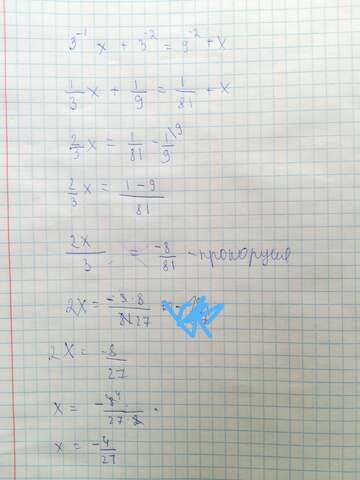 3⁻¹ x + 3⁻² = 9⁻² + x
1/3 x + 1/9 = 1/81 + x
2/3 x = 1/81 - 1/9 \9
2/3 x = (1 - 9)/81
2x/3 = -8/81 - пропорция
2x = (-3·8)/(81 27) =
2x = -8/27
x = -8 4/(27·2)
x = -4/27